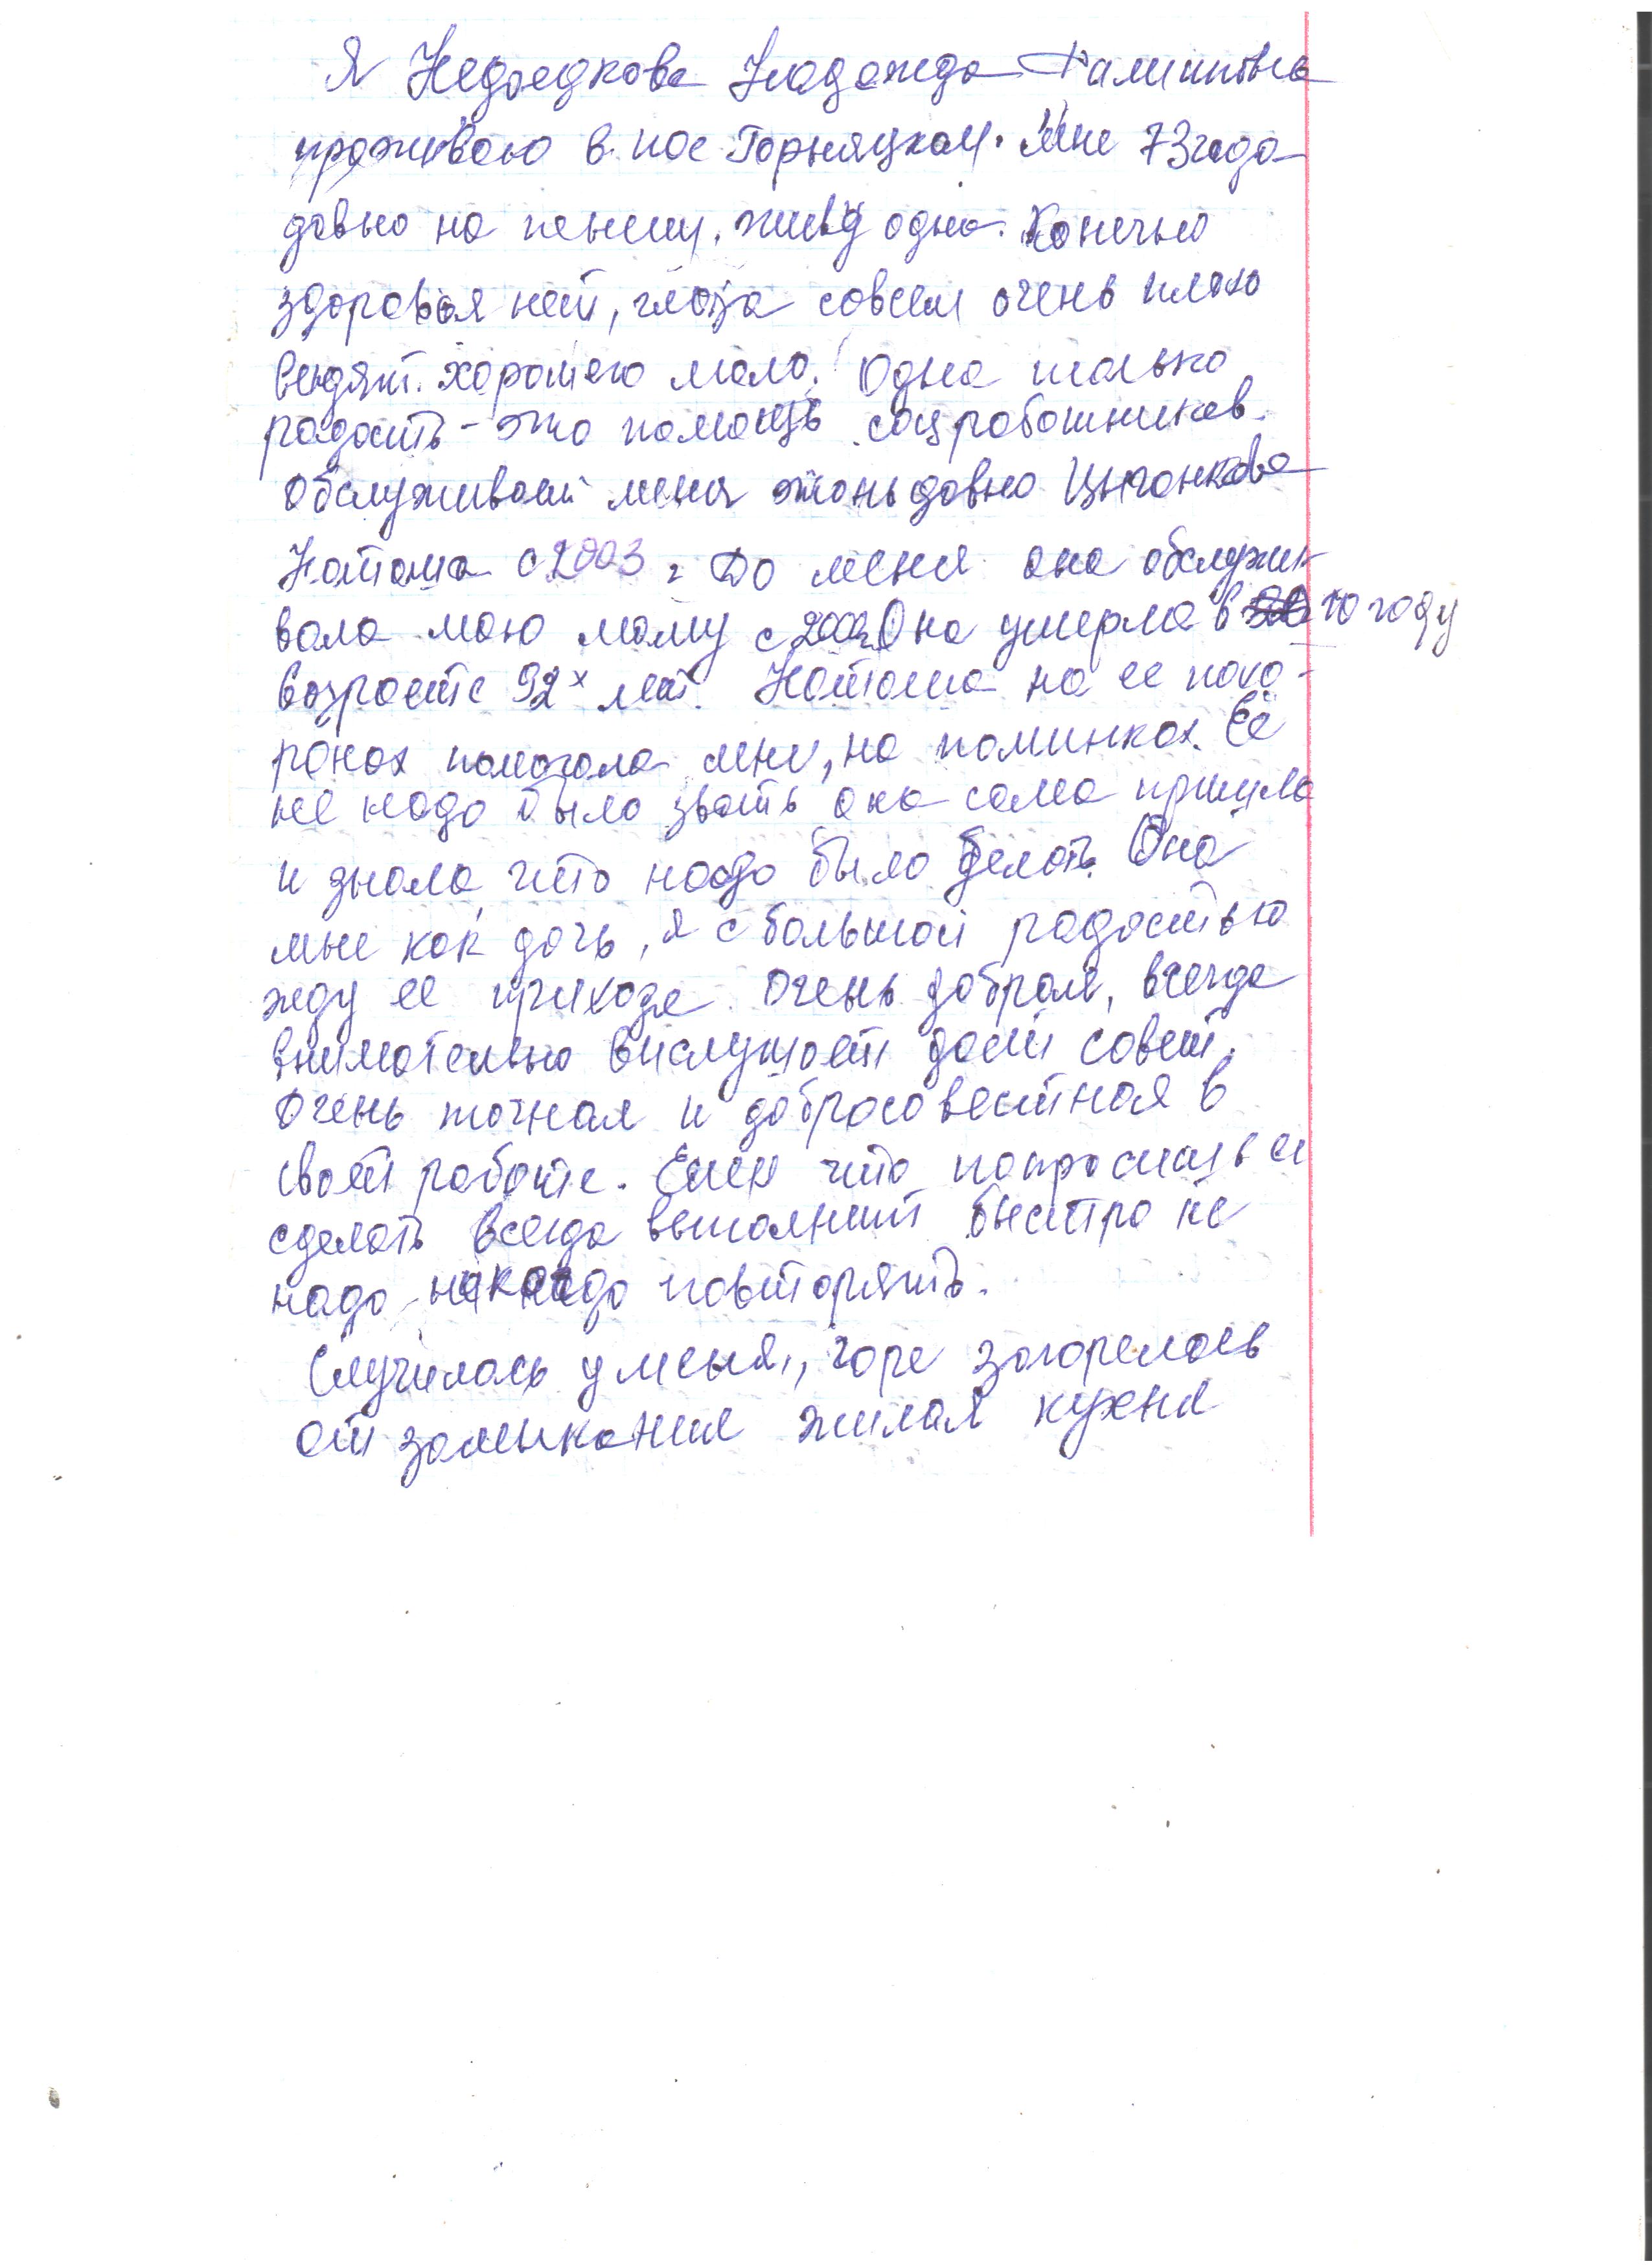 Я Недоедкова Надежда Филипповна
проживаю в пос Горняцком. Мне 73 года
давно на пенсии, живу одна. Конечно
здоровья нет, глаза совсем очень плохо
видят. Хорошего мало. Одна только
радость - это помощь соцработников.
Обслуживает меня очень давно Цыганкова
Наташа с 2003 г До меня она обслужи-
вала мою маму с Она умерла в 10 году
возрасте 92х лет. Наташа на ее похо-
ронах помогала мне, на поминках. Её
не надо было звать она сама пришла
и знала что надо было делать. Она
мне как дочь, я с большой радостью
жду ее прихода. Очень добрая, всегда
внимательно выслушает даст совет.
Очень точная и добросовестная в
своей работе. Если что попросишь ее
сделать всегда выполнит быстро не
надо повторять.
Случилось у меня, горе загорелось
от замыкания жилая кухня